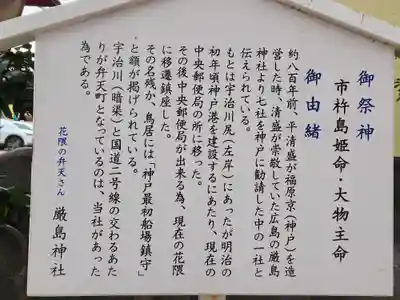 御祭神
市杵島姫命・大物主命
御由緒
約八百年前、平清盛が福原京(神戸)を造
営した時、清盛が崇敬していた広島の厳島
神社より七社を神戸に勧請した中の一社と
伝えられている。
もとは宇治川尻(左岸)にあったが明治の
初年頃神戸港を建設するにあたり、現在の
中央郵便局の所に移った。
その後中央郵便局が出来る為、現在の花隈
に移遷鎮座した。
その名残か、鳥居には「神戸最初船場鎮守」
と額が掲げられている。
宇治川(暗渠)と国道二号線の交わるあた
りが弁天町となっているのは、当社があった
為である。
花隈の弁天さん
厳島神社